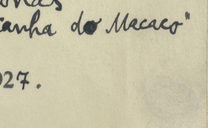 anha do Macaco"
027.